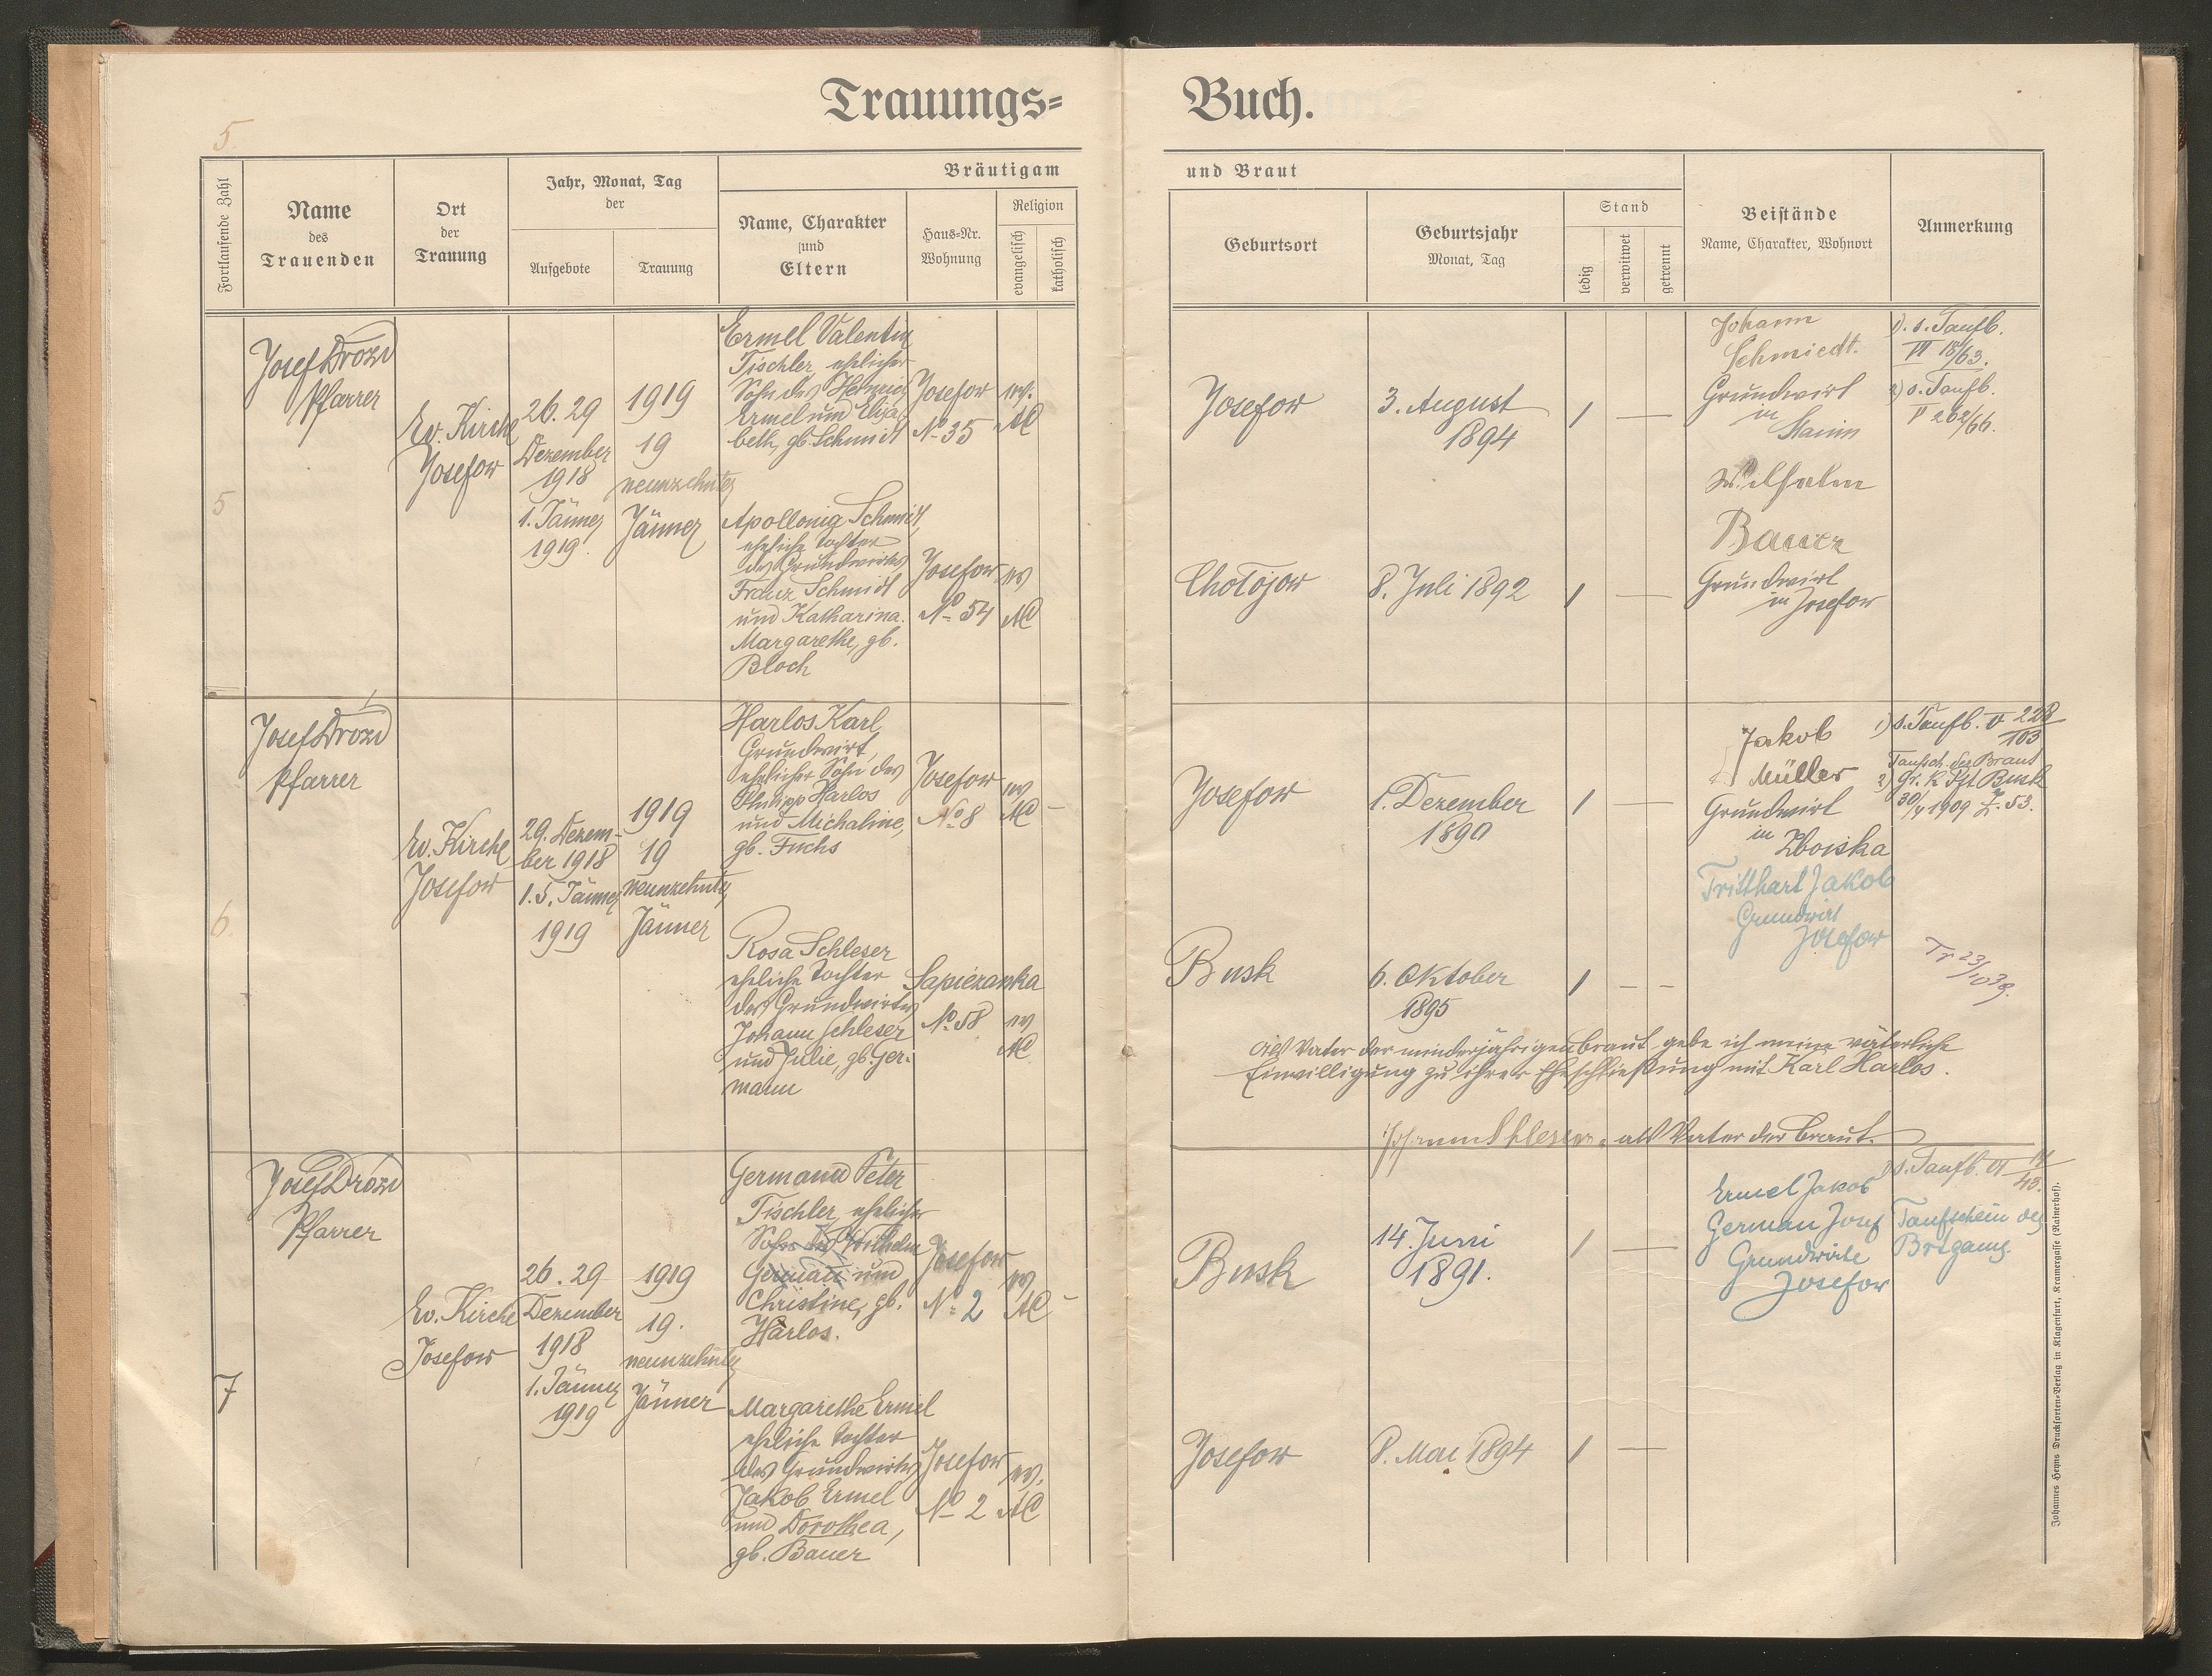 Trauungs=
Buch.
5.
Fortlaufende Zahl
Name
des
Trauenden
Ort
der
Trauung
Jahr, Monat, Tag
der
Aufgebote
Trauung
Bräutigam
Name, Charakter
und
Eltern
Haus=Nr.
Wohnung
Religion
evangelisch
katholisch
und Braut
Geburtsort
Geburtsjahr
Monat, Tag
Stand
ledig
verwitwet
getrennt
Beistände
Name, Charakter, Wohnort
Anmerkung
5
Josef Drozd
Pfarrer
Ev. Kirche
Josefow
26. 29
Dezember
1918
1. Jänner
1919
1919
19
neunzehnter
Jänner
Ermel Valentin
Tischler, ehelicher
Sohn des Heinrich
Ermel und Elisa
beth, gb. Schmidt
Josefow
No 35
ev.
AC
Josefow
3. August
1894
1
Johann
Schmiedt.
Grundwirt
in
Stanin
1). s. Taufb.
VI 18/63.
2) s. Taufb.
V 262/66.
Apollonia Schmidt,
eheliche Tochter
des Grundwirtes
Franz Schmidt
und Katharina
Margarethe, gb.
Bloch
Josefow
No 54
ev
AC
Chotojow
8. Juli 1892
1
Wilhelm
Bauer
Grundwirt
in Josefow
6.
Josef Drozd
Pfarrer
Ev. Kirche
Josefow
29. Dezem-
ber 1918
1. 5. Jänner
1919
1919
19
neunzehnter
Jänner
Harlos Karl
Grundwirt,
ehelicher Sohn des
Philipp Harlos
und Michaline,
gb. Fuchs
Josefow
No 8
ev
AC
Josefow
1. Dezember
1890
1
Jakob
Müller
Grundwirt
in
Zboiska
1) s. Taufb. V 228/103
Taufsch. der Braut
2) gr. k Pft Busk
30/V 1909 Z. 53.
Rosa Schleser
eheliche Tochter
des Grundwirtes
Johann Schleser
und Julie, gb. Ger-
mann
Sapiezanka
No 58
ev
AC
Busk
6. Oktober
1895
1
Tritthart Jakob
Grundwirt
Josefow
Als Vater der minderjährigen Braut gebe ich meine väterliche
Einwilligung zu ihrer Eheschließung mit Karl Harlos.
Johann Schleser, als Vater der Braut.
7
Josef Drozd
Pfarrer
Ev. Kirche
Josefow
26. 29
Dezember
1918
1. Jänner
1919
1919
19.
neunzehnter
Jänner
Germann Peter
Tischler, ehelicher
Sohn des Wilhelm
German und
Christine, gb.
Harlos.
Josefow
No 2
ev
AC
Busk
14. Juni
1891.
1
Ermel Jakob
German Josef
Grundwirte
Josefow
s. Taufb. VI
Taufschein des
Brtgams.
Margarethe Ermel
eheliche Tochter
des Grundwirtes
Jakob Ermel
und Dorothea,
gb. Bauer
Josefow
No 2
ev.
AC
Josefow
8. Mai 1894
1
Johannes Heyns Drucksorten=Verlag in Klagenfurt, Kramergasse (Rainerhof).